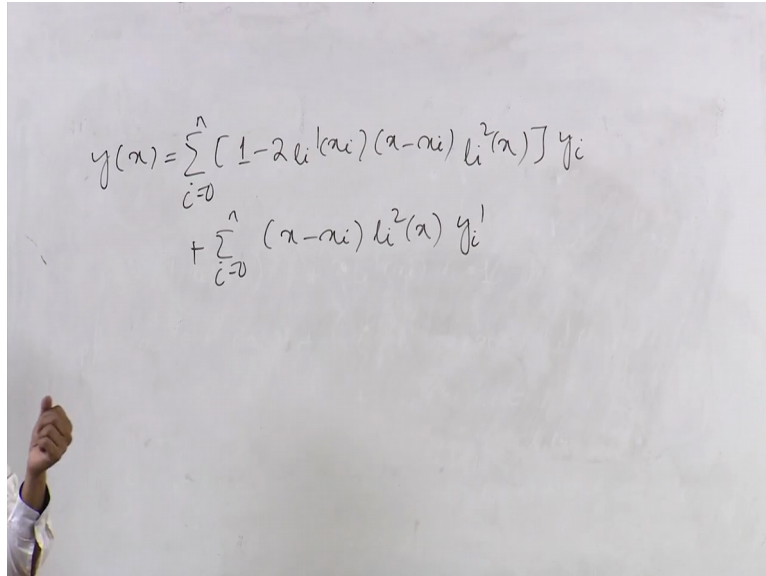 y(x) = \sum_{i=0}^{n} [ 1 - 2 l_i'(x_i) (x - x_i) l_i^2(x) ] y_i
+ \sum_{i=0}^{n} (x - x_i) l_i^2(x) y_i'